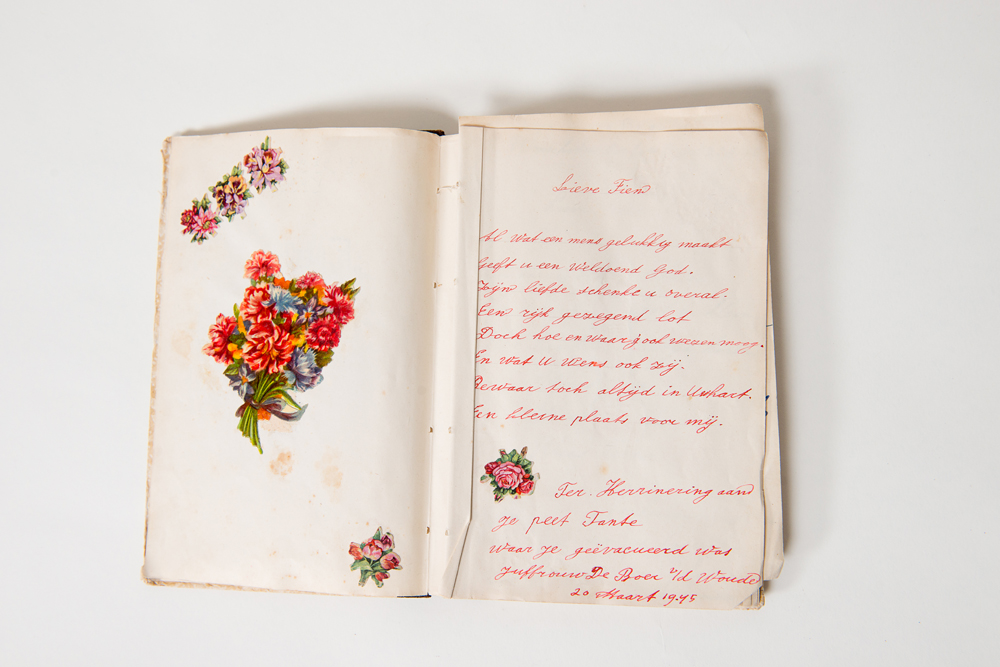 Lieve Fien
Al wat een mens gelukkig maakt
Geeft u een weldoend God.
Zijn liefde schenke u overal.
Een rijk gezegend lot
Doch hoe en waar j'ook wezen moog.
En wat U wens ook zij.
Bewaar toch altijd in Uw hart.
Een kleine plaats voor mij.
Ter. Herrinering aan
je peet Tante
waar je geëvacueerd was
Juffrouw De Boer v/d Woude
20 Maart 1945